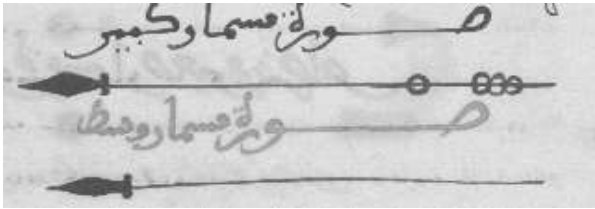 صورة مسمار كبير
صورة مسمار وسط